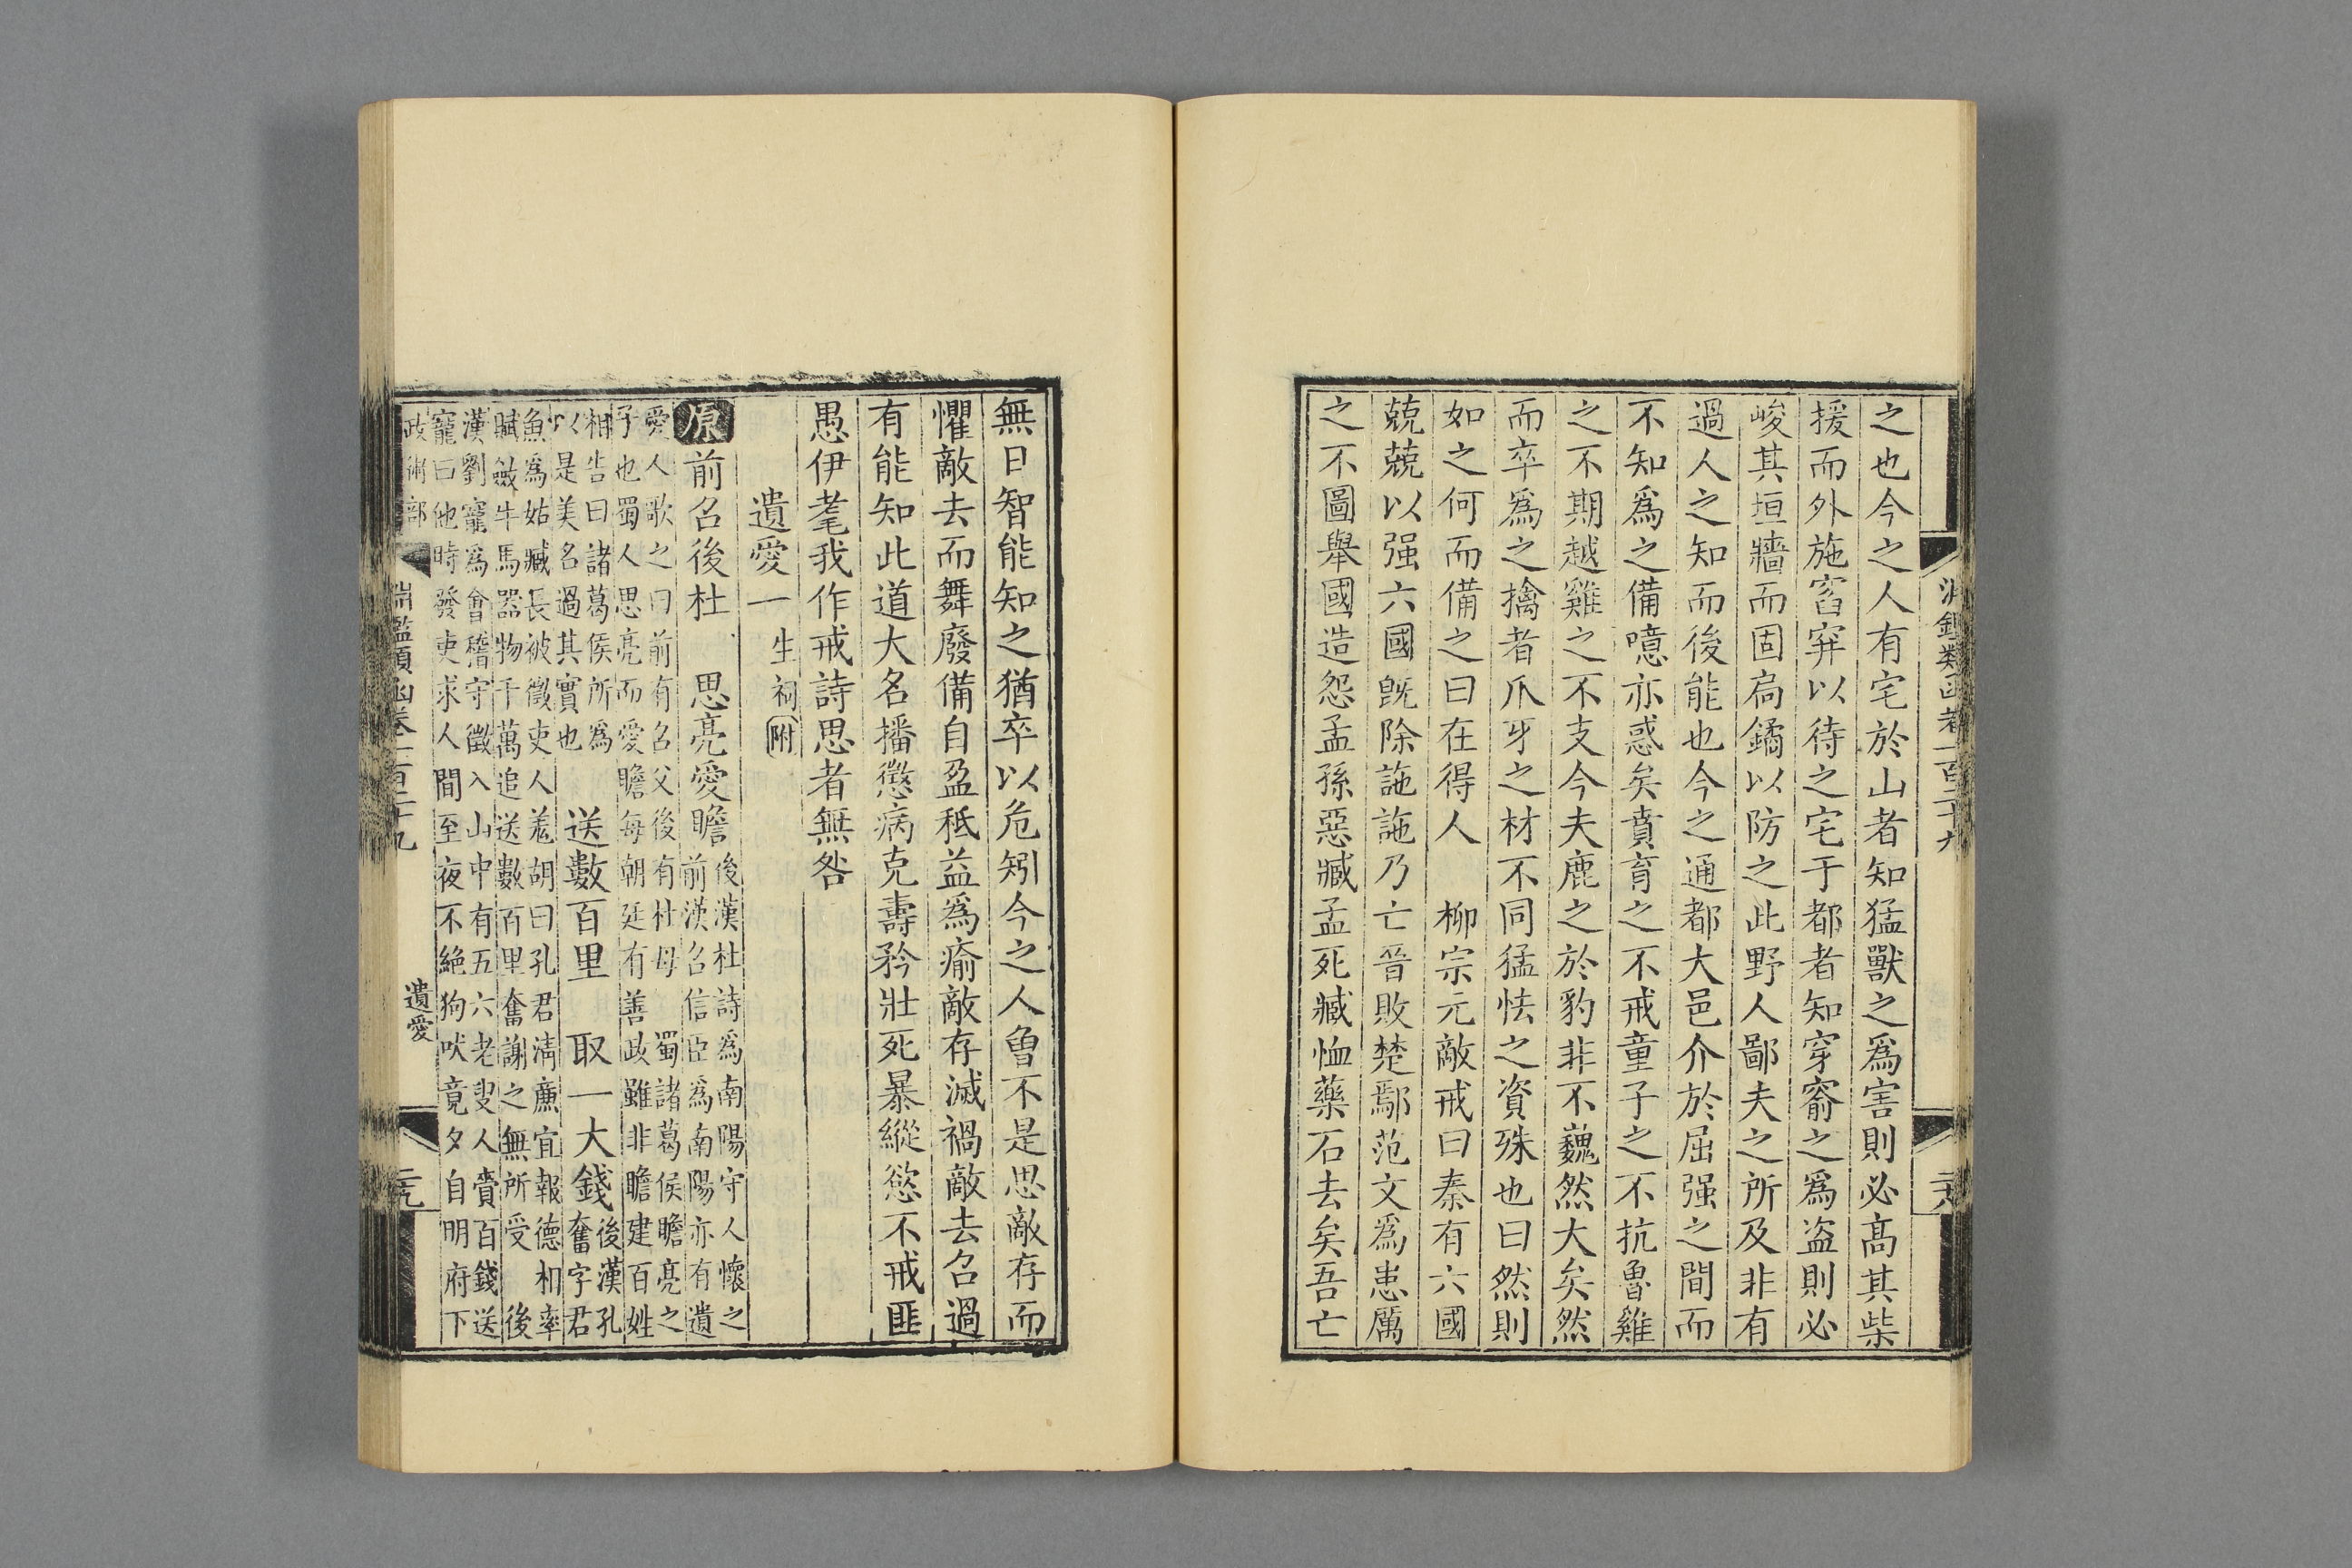 之也今之人有宅於山者知猛獸之爲害則必高其柴
援而外施窞穽以待之宅于都者知穿窬之爲盜則必
峻其垣牆而固扃鐍以防之此野人鄙夫之所及非有
過人之知而後能也今之通都大邑介於屈强之間而
不知爲之備噫亦惑矣賁育之不戒童子之不抗魯雞
之不期越雞之不支今夫鹿之於豹非不巍然大矣然
而卒爲之擒者爪牙之材不同猛怯之資殊也曰然則
如之何而備之曰在得人　柳宗元敵戒曰秦有六國
兢兢以强六國旣除訑訑乃亡晉敗楚鄢范文爲患厲
之不圖舉國造怨孟孫惡臧孟死臧恤藥石去矣吾亡
二十八
無日智能知之猶卒以危矧今之人曾不是思敵存而
懼敵去而舞廢備自盈秪益爲瘉敵存滅禍敵去召過
有能知此道大名播懲病克壽矜壯死暴縱慾不戒匪
愚伊耄我作戒詩思者無咎
遺愛一 生祠附
原前召後杜　思亮愛瞻 後漢杜詩爲南陽守人懷之
前漢召信臣爲南陽亦有遺
愛人歌之曰前有召父後有杜母　蜀諸葛侯瞻亮之
子也蜀人思亮而愛瞻每朝廷有善政雖非瞻建百姓
相告曰諸葛侯所爲
以是美名過其實也 送數百里　取一大錢 後漢孔
奮字君
魚爲姑臧長被徵吏人羌胡曰孔君淸廉宜報德相率
賦斂牛馬器物千萬追送數百里奮謝之無所受　後
漢劉寵爲會稽守徵入山中有五六老叟人賫百錢送
寵曰他時發吏求人間至夜不絶狗吠竟夕自明府下
政術部
淵鑑類函卷一百二十九
遺愛
二十九